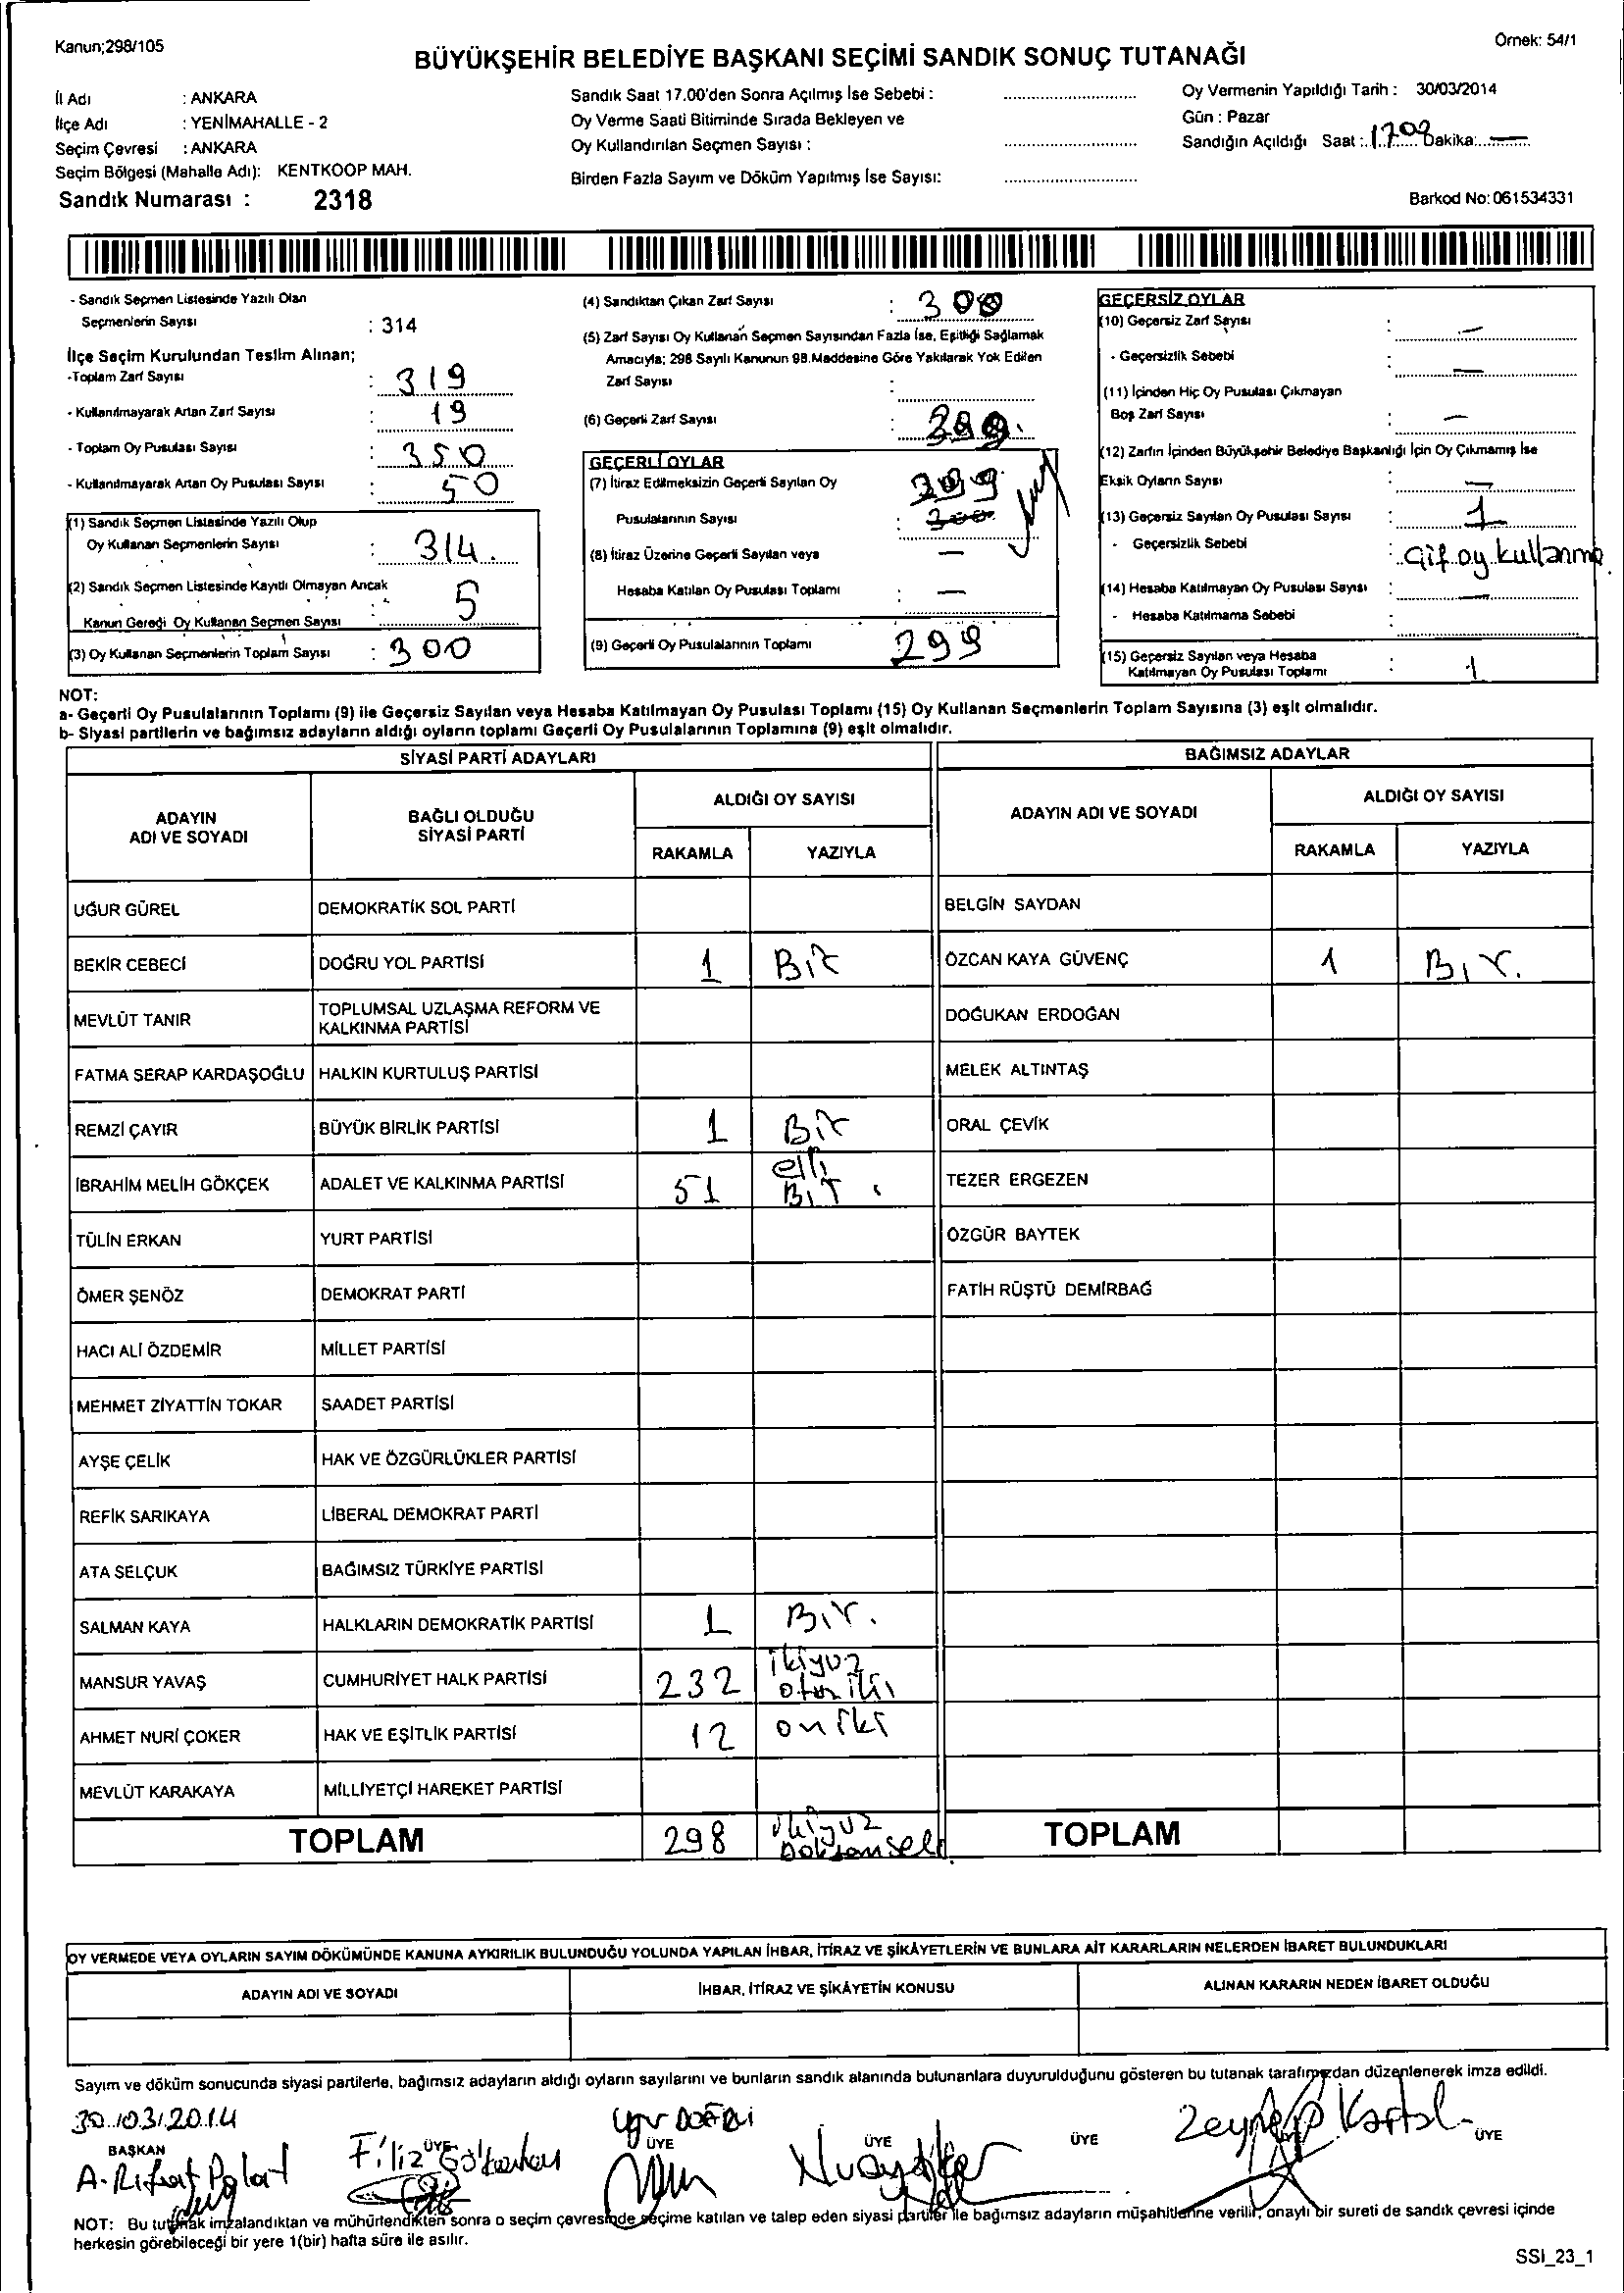 Kanun;298/105
Örnek: 54/1
BÜYÜKŞEHİR BELEDİYE BAŞKANI SEÇİMİ SANDIK SONUÇ TUTANAĞI
İl Adı : ANKARA
İlçe Adı : YENİMAHALLE - 2
Seçim Çevresi : ANKARA
Seçim Bölgesi (Mahalle Adı): KENTKOOP MAH.
Sandık Numarası : 2318
Sandık Saat 17.00'den Sonra Açılmış İse Sebebi :
Oy Verme Saati Bitiminde Sırada Bekleyen ve
Oy Kullandırılan Seçmen Sayısı :
Birden Fazla Sayım ve Döküm Yapılmış İse Sayısı:
Oy Vermenin Yapıldığı Tarih : 30/03/2014
Gün : Pazar
Sandığın Açıldığı Saat : 1700 Dakika: —
Barkod No: 061534331
- Sandık Seçmen Listesinde Yazılı Olan
Seçmenlerin Sayısı : 314
İlçe Seçim Kurulundan Teslim Alınan;
-Toplam Zarf Sayısı : 319
- Kullanılmayarak Artan Zarf Sayısı : 19
- Toplam Oy Pusulası Sayısı : 350
- Kullanılmayarak Artan Oy Pusulası Sayısı : 50
(1) Sandık Seçmen Listesinde Yazılı Olup
Oy Kullanan Seçmenlerin Sayısı : 314.
(2) Sandık Seçmen Listesinde Kayıtlı Olmayan Ancak
Kanun Gereği Oy Kullanan Seçmen Sayısı : 5
(3) Oy Kullanan Seçmenlerin Toplam Sayısı : 300
(4) Sandıktan Çıkan Zarf Sayısı : 300
(5) Zarf Sayısı Oy Kullanan Seçmen Sayısından Fazla İse, Eşitliği Sağlamak
Amacıyla; 298 Sayılı Kanunun 98.Maddesine Göre Yakılarak Yok Edilen
Zarf Sayısı :
(6) Geçerli Zarf Sayısı : 299.
GEÇERLİ OYLAR
(7) İtiraz Edilmeksizin Geçerli Sayılan Oy 299
Pusulalarının Sayısı : 300.
(8) İtiraz Üzerine Geçerli Sayılan veya —
Hesaba Katılan Oy Pusulası Toplamı : —
(9) Geçerli Oy Pusulalarının Toplamı 299
GEÇERSİZ OYLAR
(10) Geçersiz Zarf Sayısı : —
- Geçersizlik Sebebi : —
(11) İçinden Hiç Oy Pusulası Çıkmayan
Boş Zarf Sayısı : —
(12) Zarfın İçinden Büyükşehir Belediye Başkanlığı İçin Oy Çıkmamış İse
Eksik Oyların Sayısı : —
(13) Geçersiz Sayılan Oy Pusulası Sayısı : 1
- Geçersizlik Sebebi : Çift oy kullanma
(14) Hesaba Katılmayan Oy Pusulası Sayısı : —
- Hesaba Katılmama Sebebi :
(15) Geçersiz Sayılan veya Hesaba
Katılmayan Oy Pusulası Toplamı : 1
NOT:
a- Geçerli Oy Pusulalarının Toplamı (9) ile Geçersiz Sayılan veya Hesaba Katılmayan Oy Pusulası Toplamı (15) Oy Kullanan Seçmenlerin Toplam Sayısına (3) eşit olmalıdır.
b- Siyasi partilerin ve bağımsız adayların aldığı oyların toplamı Geçerli Oy Pusulalarının Toplamına (9) eşit olmalıdır.
SİYASİ PARTİ ADAYLARI
BAĞIMSIZ ADAYLAR
ADAYIN
ADI VE SOYADI
BAĞLI OLDUĞU
SİYASİ PARTİ
ALDIĞI OY SAYISI
RAKAMLA YAZIYLA
ADAYIN ADI VE SOYADI
ALDIĞI OY SAYISI
RAKAMLA YAZIYLA
UĞUR GÜREL DEMOKRATİK SOL PARTİ BELGİN SAYDAN
BEKİR CEBECİ DOĞRU YOL PARTİSİ 1 Bir ÖZCAN KAYA GÜVENÇ 1 Bir.
MEVLÜT TANIR TOPLUMSAL UZLAŞMA REFORM VE
KALKINMA PARTİSİ DOĞUKAN ERDOĞAN
FATMA SERAP KARDAŞOĞLU HALKIN KURTULUŞ PARTİSİ MELEK ALTINTAŞ
REMZİ ÇAYIR BÜYÜK BİRLİK PARTİSİ 1 Bir ORAL ÇEVİK
İBRAHİM MELİH GÖKÇEK ADALET VE KALKINMA PARTİSİ 51 elli
Bir TEZER ERGEZEN
TÜLİN ERKAN YURT PARTİSİ ÖZGÜR BAYTEK
ÖMER ŞENÖZ DEMOKRAT PARTİ FATİH RÜŞTÜ DEMİRBAĞ
HACI ALİ ÖZDEMİR MİLLET PARTİSİ
MEHMET ZİYATTİN TOKAR SAADET PARTİSİ
AYŞE ÇELİK HAK VE ÖZGÜRLÜKLER PARTİSİ
REFİK SARIKAYA LİBERAL DEMOKRAT PARTİ
ATA SELÇUK BAĞIMSIZ TÜRKİYE PARTİSİ
SALMAN KAYA HALKLARIN DEMOKRATİK PARTİSİ 1 Bir.
MANSUR YAVAŞ CUMHURİYET HALK PARTİSİ 232 ikiyuz
otuz iki
AHMET NURİ ÇOKER HAK VE EŞİTLİK PARTİSİ 12 on iki
MEVLÜT KARAKAYA MİLLİYETÇİ HAREKET PARTİSİ
TOPLAM 298 ikiyuz
Doksansek TOPLAM
OY VERMEDE VEYA OYLARIN SAYIM DÖKÜMÜNDE KANUNA AYKIRILIK BULUNDUĞU YOLUNDA YAPILAN İHBAR, İTİRAZ VE ŞİKÂYETLERİN VE BUNLARA AİT KARARLARIN NELERDEN İBARET BULUNDUKLARI
ADAYIN ADI VE SOYADI İHBAR, İTİRAZ VE ŞİKÂYETİN KONUSU ALINAN KARARIN NEDEN İBARET OLDUĞU
Sayım ve döküm sonucunda siyasi partilerle, bağımsız adayların aldığı oyların sayılarını ve bunların sandık alanında bulunanlara duyurulduğunu gösteren bu tutanak tarafımızdan düzenlenerek imza edildi.
30.03.2014
BAŞKAN ÜYE ÜYE ÜYE ÜYE ÜYE
A. Rıfat Polat Filiz Zeynep Kartal
NOT: Bu tutanak imzalandıktan ve mühürlendikten sonra o seçim çevresinde seçime katılan ve talep eden siyasi partiler ile bağımsız adayların müşahitlerine verilir, onaylı bir sureti de sandık çevresi içinde
herkesin görebileceği bir yere 1(bir) hafta süre ile asılır.
SSI_23_1